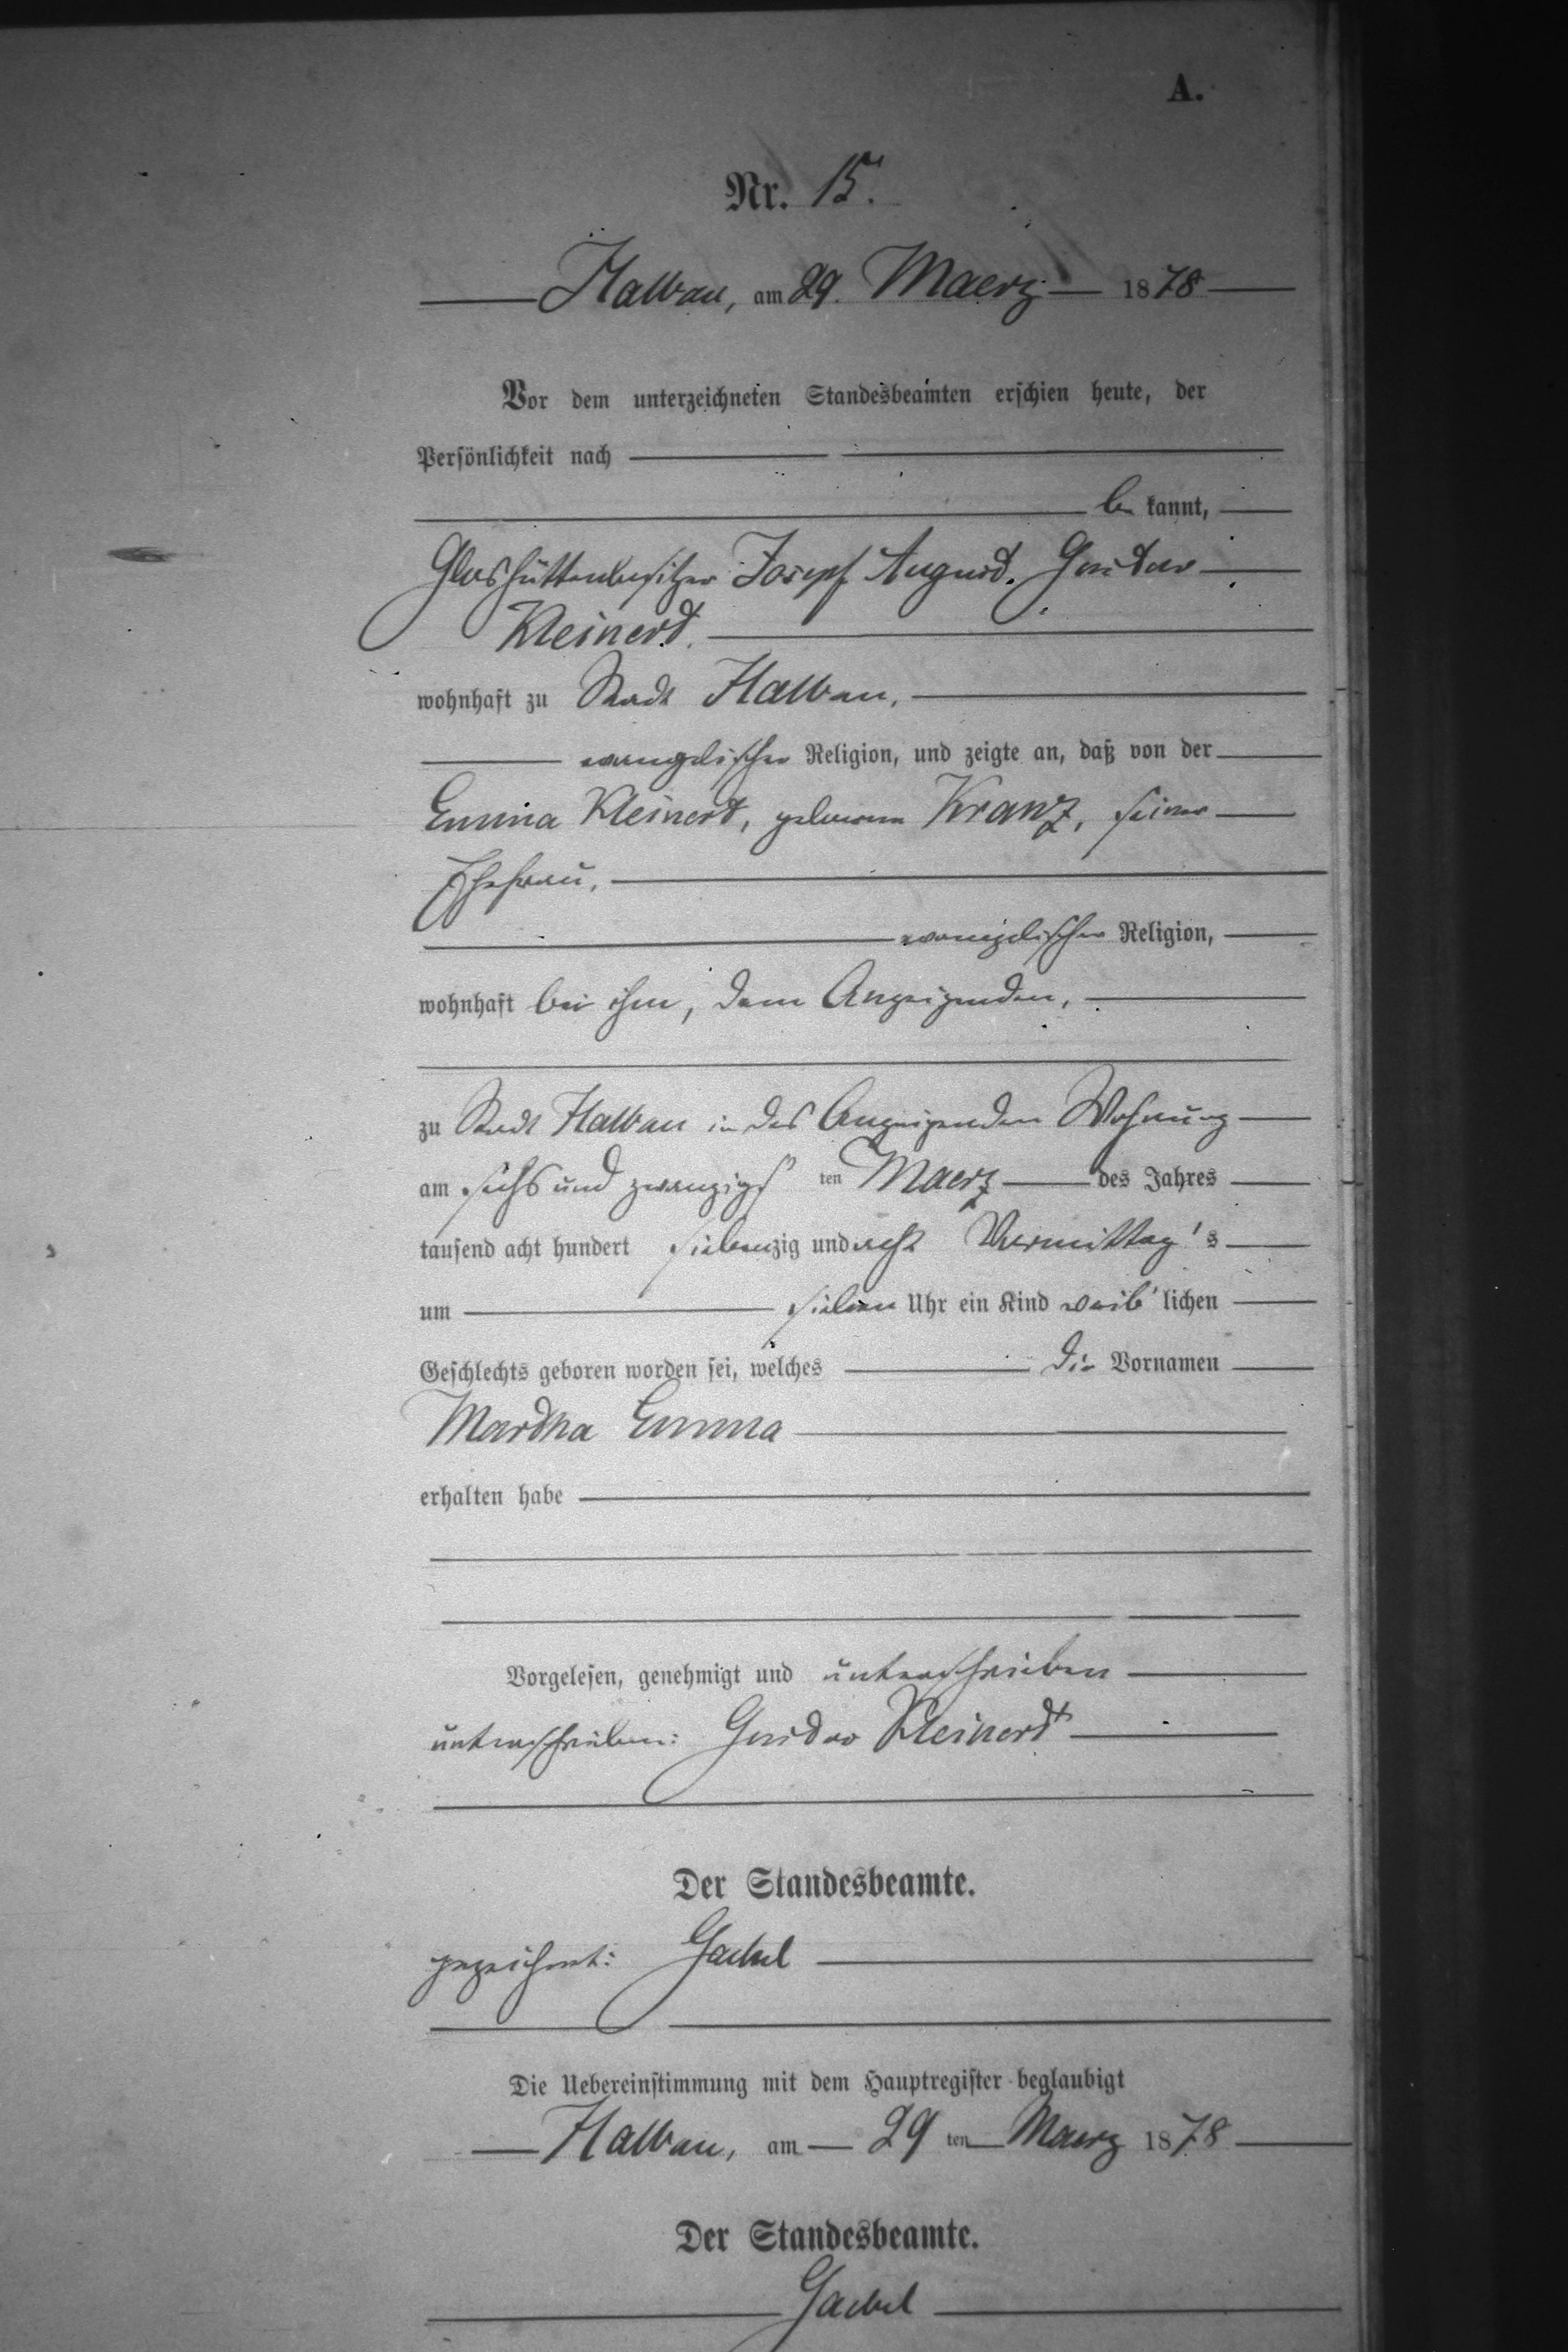 A.
Nr. 15.
Halbau, am 29. Maerz 1878
Vor dem unterzeichneten Standesbeamten erschien heute, der
Persönlichkeit nach
be kannt,
Glashüttenbesitzer Joseph August Gustav
Kleinert.
wohnhaft zu Stadt Halbau,
evangelischer Religion, und zeigte an, daß von der
Emma Kleinert, geborenen Kranz, seiner
Ehefrau,
evangelischer Religion,
wohnhaft bei ihm, dem Anzeigenden,
zu Stadt Halbau in des Anzeigenden Wohnung
am sechs und zwanzigs ten Maerz des Jahres
tausend acht hundert siebenzig und acht Vormittag's
um sieben Uhr ein Kind weib'lichen
Geschlechts geboren worden sei, welches die Vornamen
Martha Emma
erhalten habe
Vorgelesen, genehmigt und unterschrieben
unterschrieben: Gustav Kleinert
Der Standesbeamte.
gezeichnet: Gaebel
Die Uebereinstimmung mit dem Hauptregister beglaubigt
Halbau, am 29 ten Maerz 1878
Der Standesbeamte.
Gaebel